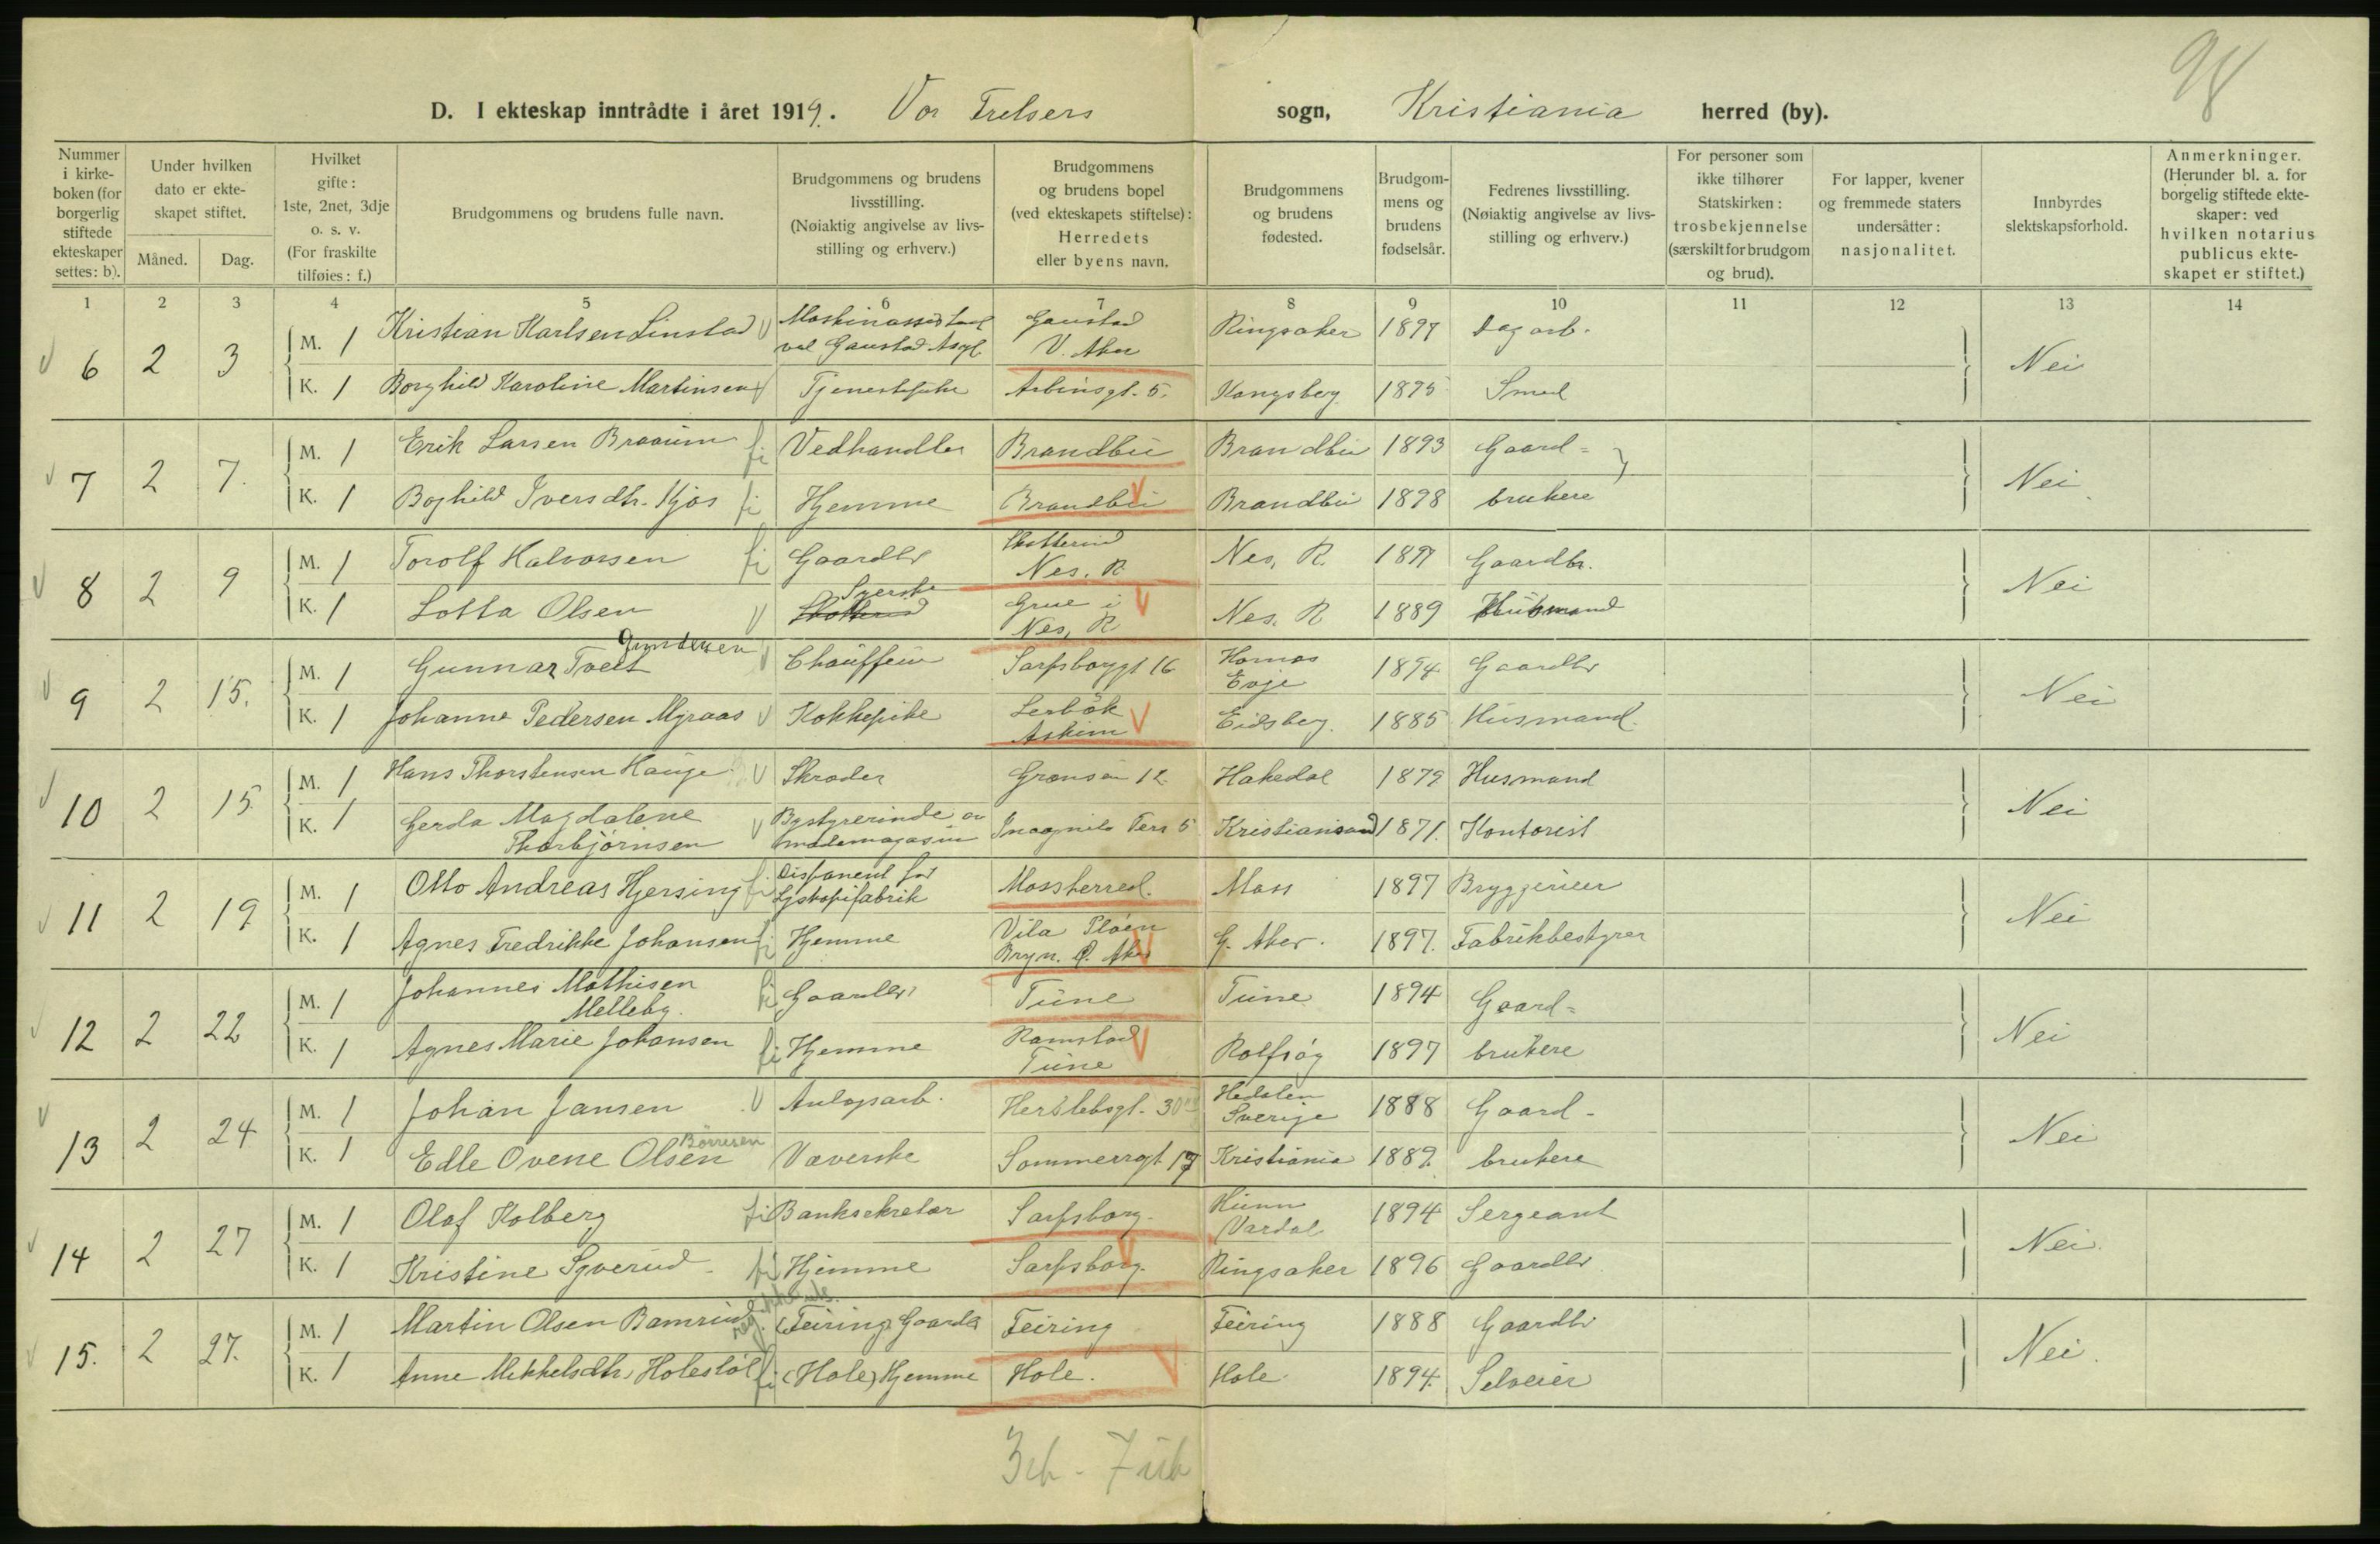 98
D. I ekteskap inntrådte i året 1919. Vor Frelsers sogn, Kristiania herred (by).
Nummer i kirkeboken (for borgerlig stiftede ekteskaper settes: b).
Under hvilken dato er ekteskapet stiftet.
Måned. Dag.
Hvilket gifte: 1ste, 2net, 3dje o. s. v. (For fraskilte tilføies: f.)
Brudgommens og brudens fulle navn.
Brudgommens og brudens livsstilling. (Nøiaktig angivelse av livsstilling og erhverv.)
Brudgommens og brudens bopel (ved ekteskapets stiftelse): Herredets eller byens navn.
Brudgommens og brudens fødested.
Brudgommens og brudens fødselsår.
Fedrenes livsstilling. (Nøiaktig angivelse av livsstilling og erhverv.)
For personer som ikke tilhører Statskirken: trosbekjennelse (særskilt for brudgom og brud).
For lapper, kvener og fremmede staters undersåtter: nasjonalitet.
Innbyrdes slektskapsforhold.
Anmerkninger. (Herunder bl. a. for borgelig stiftede ekteskaper: ved hvilken notarius publicus ekteskapet er stiftet.)
1 2 3 4 5 6 7 8 9 10 11 12 13 14
6 2 3 M. 1 Kristian Karlsen Linstad Maskinassistent ved Gaustad Asyl. Gaustad V. Aker Ringsaker 1897 Dagarb. Nei
K. 1 Borghild Karoline Martinsen Tjenestepike Arbinsgt. 5. Kongsberg 1895 Smed
7 2 7. M. 1 Erik Larsen Braaum fi Vedhandler Brandbu Brandbu 1893 Gaard= Nei
K. 1 Boghild Iversdtr. Kjos fi Hjemme Brandbu Brandbu 1898 brukere
8 2 9 M. 1 Torolf Halvorsen fi Gaardbr Skotterud Nes, R. Nes, R. 1891 Gaardbr. Nei
K. 1 Lotta Olsen Syerske Skotterud Grue i Nes, R Nes, R 1889 Husmand
9 2 15. M. 1 Gunnar Tveit Gundersen Chauffeur Sarpsborggt 16 Hornnes Evje 1894 Gaardbr Nei
K. 1 Johanne Pedersen Myraas Kokkepike Askim Eidsberg. 1885 Husmand.
10 2 15 M. 1 Hans Thorstensen Hauge Skræder Grænsen 12 Hakedal 1879 Husmand Nei
K. 1 Gerda Magdalene Thorbjørnsen Bystyrerinde av motemagasin Inognito Terr 5 Kristiansand 1871. Kontorist
11 2 19 M. 1 Otto Andreas Hjersing fi Disponent for Lyskopifabrik Mossherred. Moss 1897 Bryggerieier Nei
K. 1 Agnes Fredrikke Johansen fi Hjemme Vila Pløen Bryn. Ø. Aker Ø. Aker. 1897. Fabrikbestyrer
12 2 22 M. 1 Johannes Mathisen Melleby. fi Gaardbr Tune Tune 1894 Gaard= Nei
K. 1 Agnes Marie Johansen fi Hjemme Ramstad Tune Rolfsøy 1897 brukere
13 2 24 M. 1 Johan Jansen Anlegsarb. Herslebsgt. 30 Hedalen Sverige 1888 Gaard- Nei
K. 1 Edle Ovene Olsen Børresen Væverske Sommerrogt. 17 Kristiania 1889. brukere
14 2 27 M. 1 Olaf Kolberg fi Banksekretær Sarpsborg. Hunn Vardal 1894 Sergeant Nei.
K. 1 Kristine Syverud fi Hjemme Sarpsborg. Ringsaker 1896 Gaardbr
15. 2 27. M. 1 Martin Olsen Bamrud (Feiring) Gaardbr Feiring Feiring 1888 Gaardbr Nei.
K. 1 Anne Mikkelsdtr. Holestøl fi (Hole) Hjemme Hole. Hole 1894. Selveier